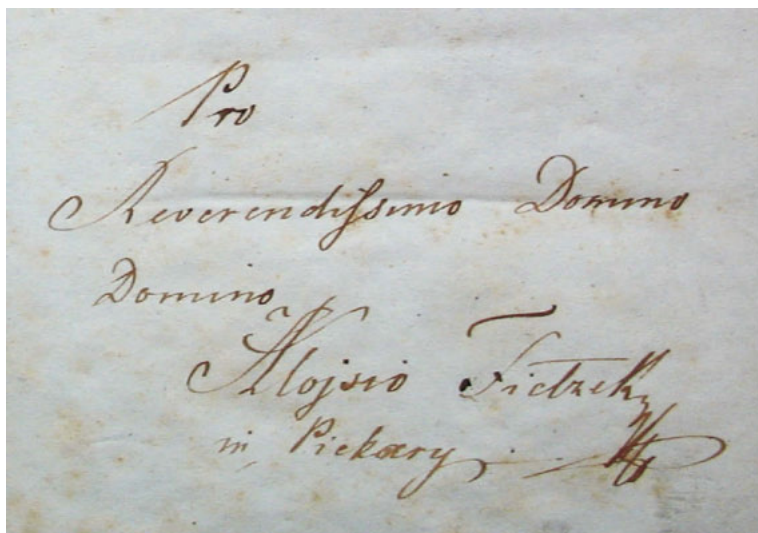 Pro
Reverendissimo Domino
Domino
Alojsio Fietzek
in Piekary